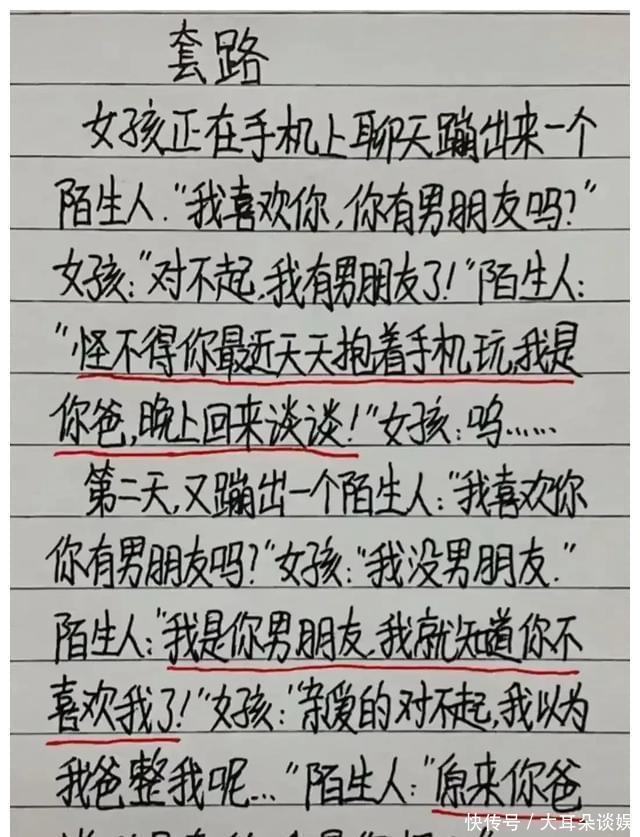 套路
女孩正在手机上聊天蹦出来一个
陌生人:"我喜欢你,你有男朋友吗?"
女孩:"对不起,我有男朋友了!"陌生人:
"怪不得你最近天天抱着手机玩,我是
你爸,晚上回来谈谈!"女孩:呜……
第二天,又蹦出一个陌生人:"我喜欢你
你有男朋友吗?"女孩:"我没男朋友."
陌生人:"我是你男朋友,我就知道你不
喜欢我了!"女孩:"亲爱的对不起,我以为
我爸整我呢..."陌生人:"原来你爸
快传号/大耳朵谈娱